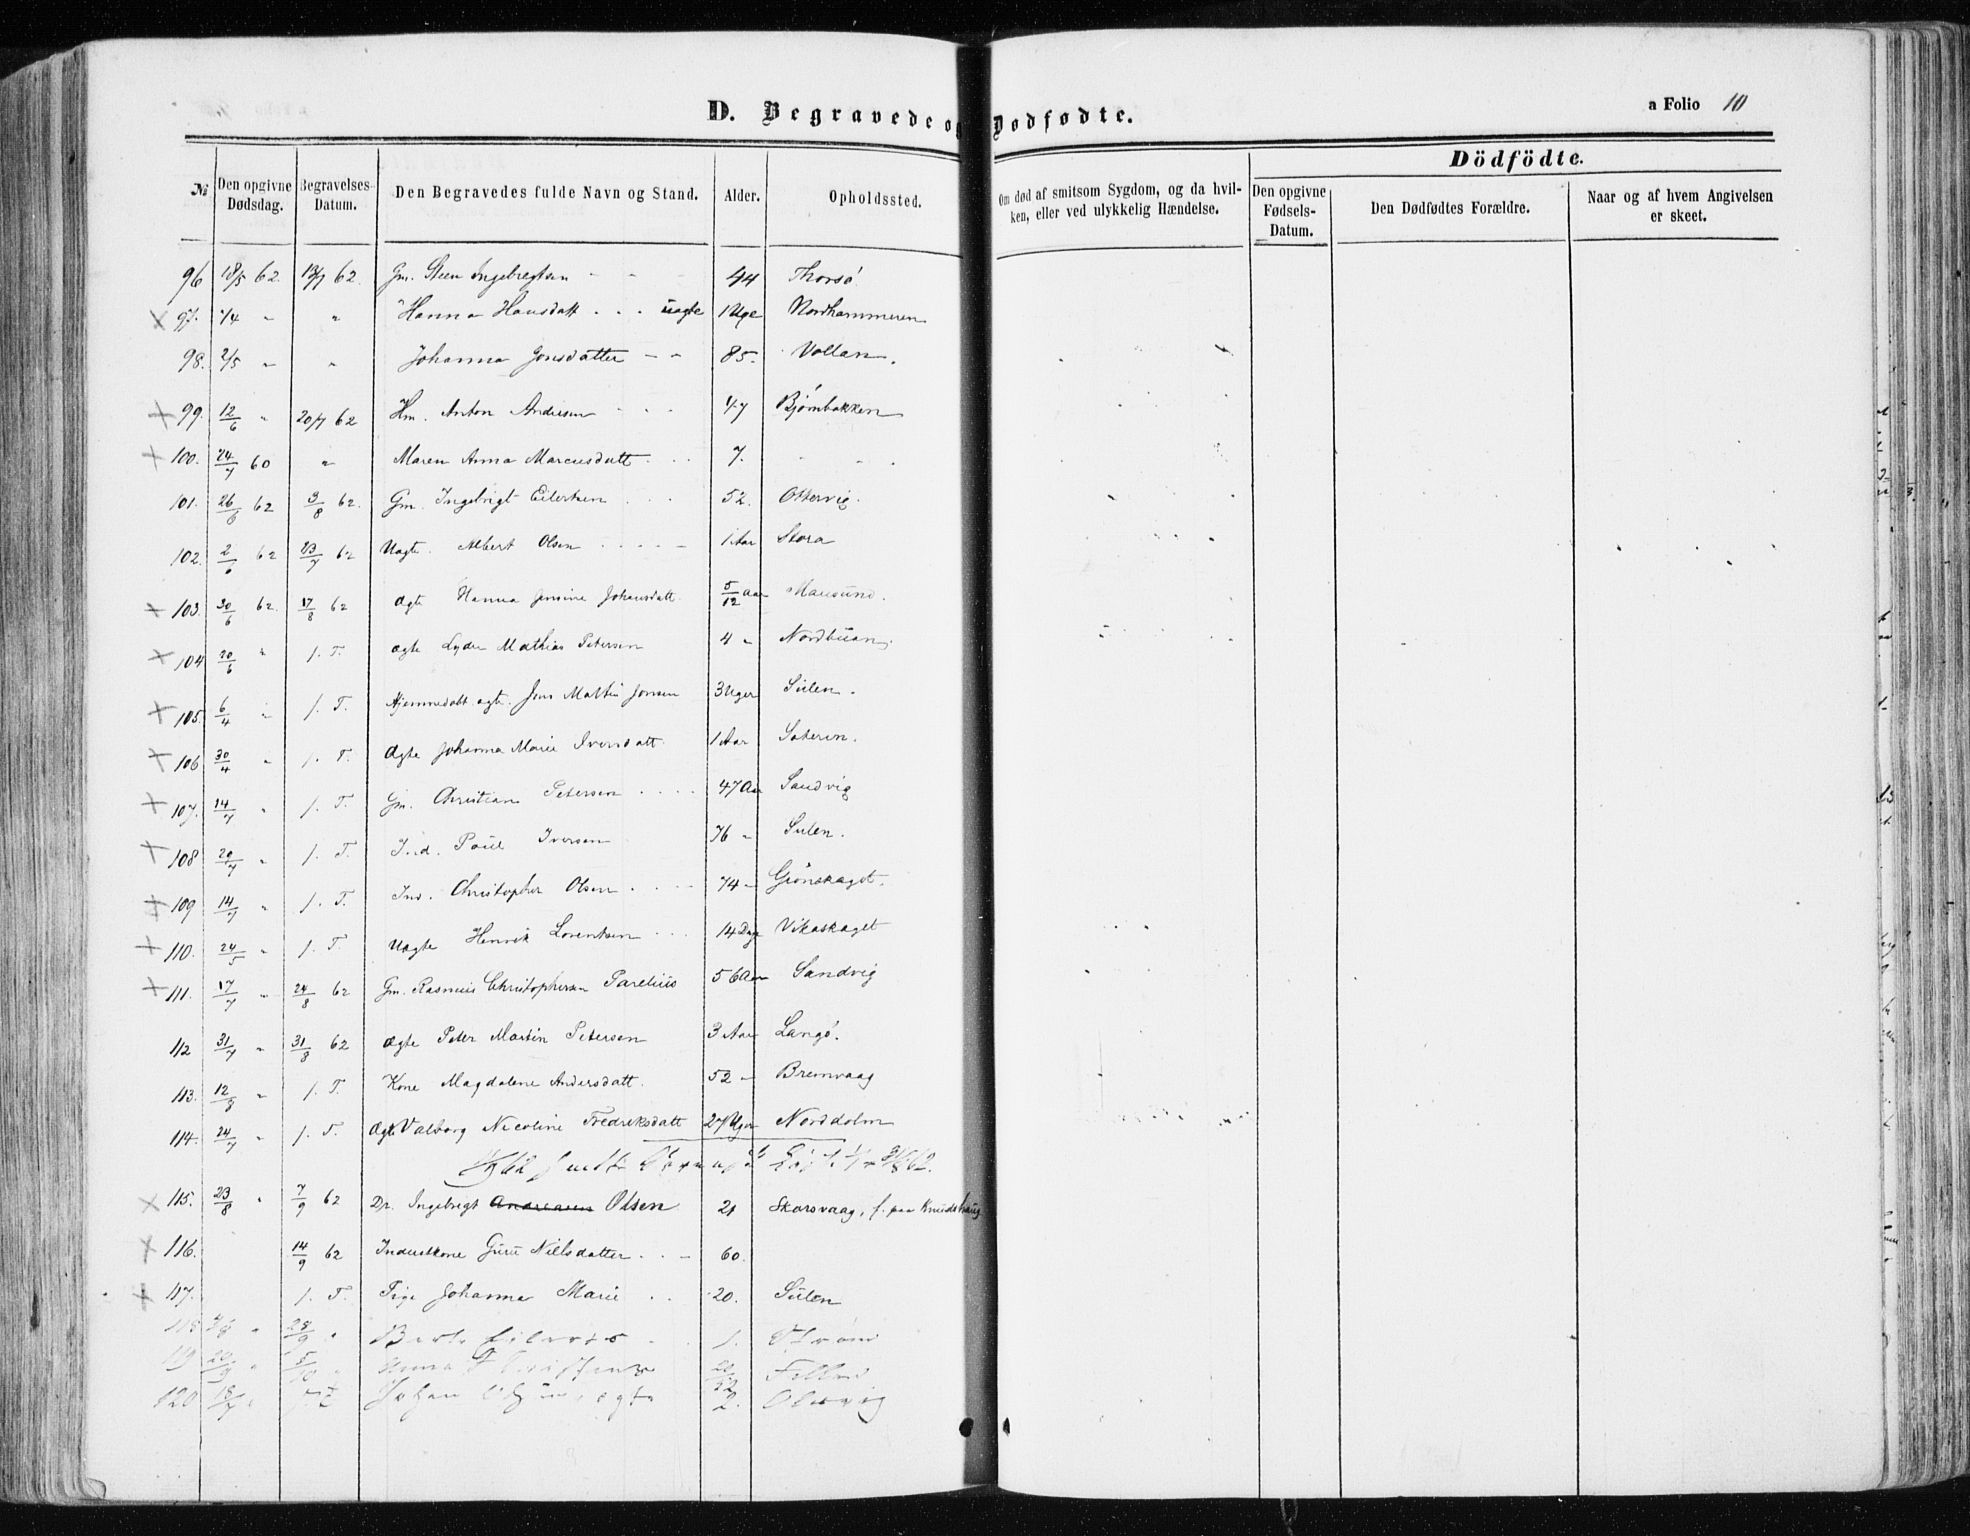 D. Begravede og Dødfødte.
a Folio 10
Dödfödte.
№ Den opgivne Dødsdag. Begravelses-Datum. Den Begravedes fulde Navn og Stand. Alder. Opholdssted. Om død af smitsom Sygdom, og da hvilken, eller ved ulykkelig Hændelse. Den opgivne Fødsels-Datum. Den Dødfødtes Forældre. Naar og af hvem Angivelsen er skeet.
96 18/5 62. 13/7 62. Gm. Steen Ingebregtsen - - 44 Thorsø
97. 7/4 " " Hanna Hansdatt . . . uægte 1 Uge Nordhammeren
98. 2/5 " " Johanna Jonsdatter - - 85. Vollan.
99. 12/6 " 20/7 62 Hm. Anton Andersen - - - 47 Bjørnbakken
100. 24/7 60 " Maren Anna Marcusdatt . . . 7. - - .
101. 26/6 62 3/8 62. Gm. Ingebrigt Eilertsen . . . 52. Ottervig.
102. 2/6 62 23/7 62 Uægte. Albert Olsen . . . . 1 Aar Stora
103. 30/6 62. 17/8 62 ægte Hanna Jensine Johansdatt. 5/12 Aar Mausund.
104 20/6 " s. D. ægte Lyder Mathias Petersen 4 " Nordbuan.
105. 6/4 " s. T. Hjemmedøbt ægte. Jens Martin Jonsen 3 Uger Sulen.
106 30/4 " s. T. Ægte Johanna Marie Iversdatt. 1 Aar Sæteren.
107. 14/7 " s. T. Gm. Christian Petersen . . . . 47 Aar Sandvig
108 20/7 " s. T. Ind. Poul Iversen 76 " Sulen.
109 14/7 " s. T. Ind. Christopher Olsen . . . . 74 " Grønskaget.
110. 24/5 " s. T. Uægte Henrik Lorentsen . . . 14 Dage Vikaskaget
111. 17/7 " 24/8 62 Gm. Rasmus Christophersen Parelius 56 Aar Sandvig
112 31/7 " 31/8 62 Ægte Peter Martin Petersen 3 Aar Langø.
113. 12/8 " s. T. Kone Magdalene Andersdatt. 52 " Bremvaag
114. 24/7 " s. T. Ægte Valborg Nicoline Fredriksdatt 27 Uger Nordholm
115. 23/8 " 7/9 62 Dr. Ingebrigt Andreasen Olsen 21 Skarsvaag, f. paa Knudshaug
116. 14/9 62 Inderstkone Guru Nielsdatter . . - 60.
117. s. T. Pige Johanna Marie . . 20. Sulen
118 28/9 " 1.
119 20/9 5/10 Anna 20/52
120 18/7 Johan ægte 2.